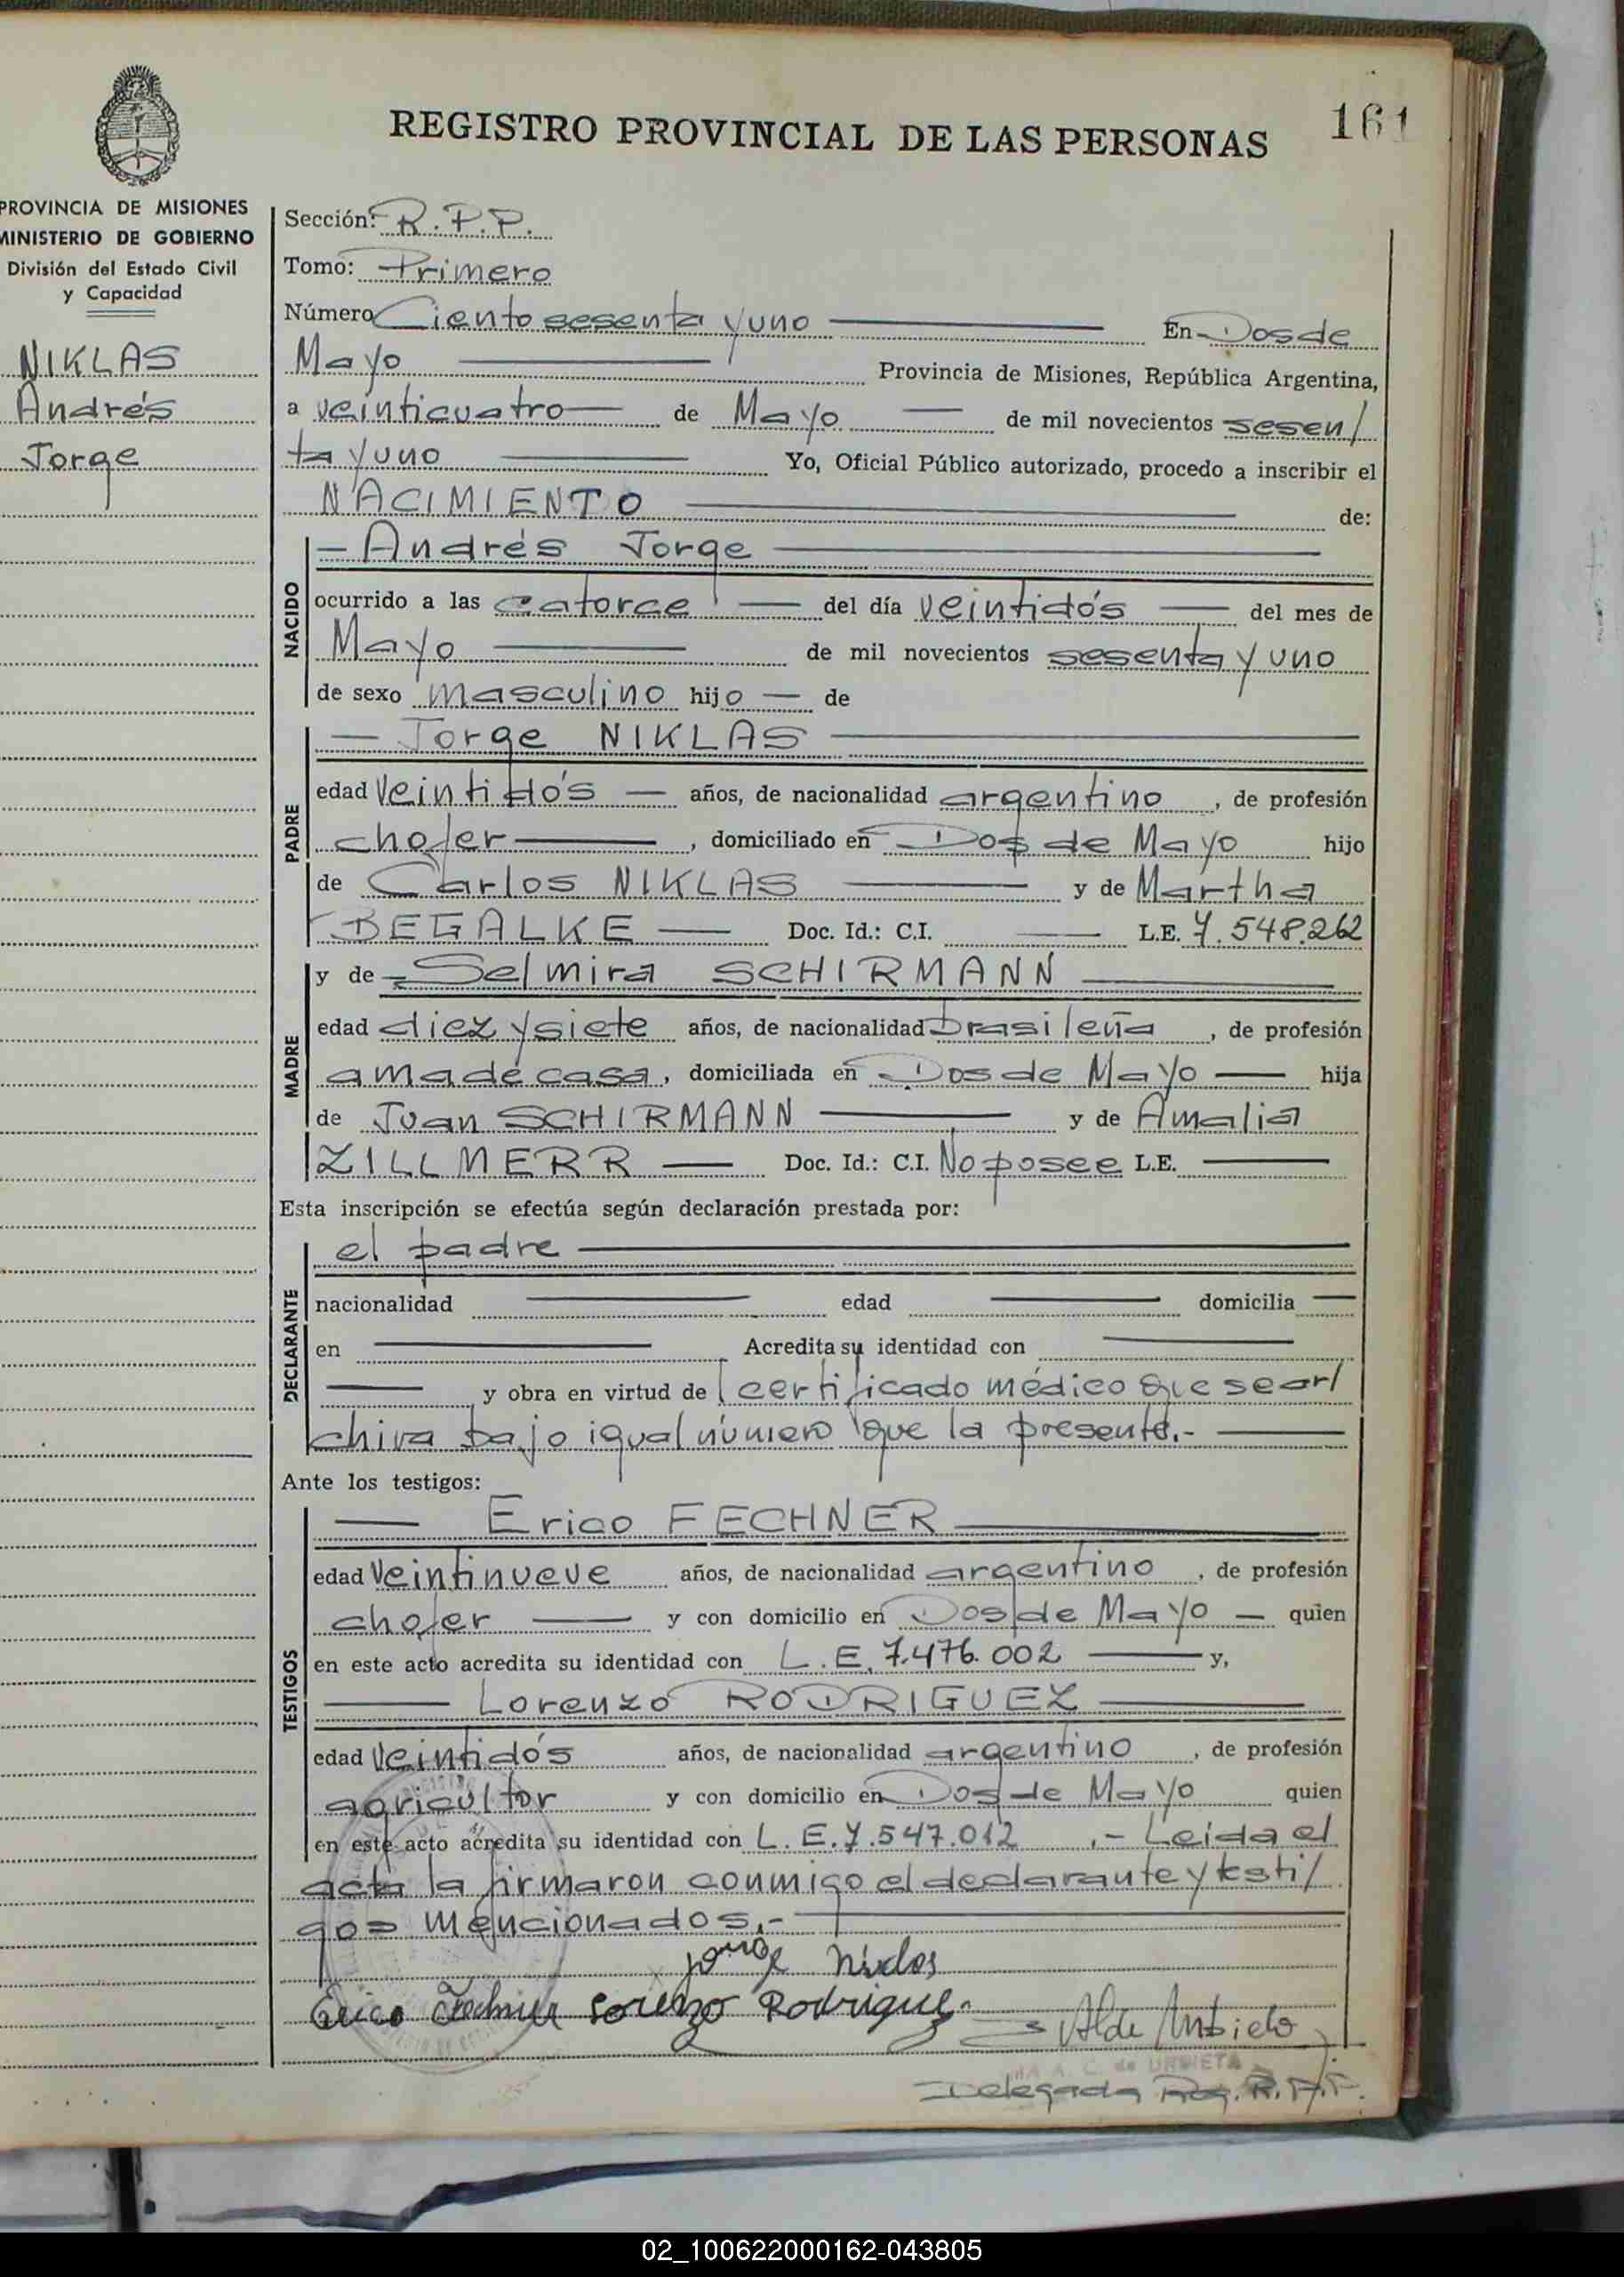 REGISTRO PROVINCIAL DE LAS PERSONAS
161
PROVINCIA DE MISIONES
MINISTERIO DE GOBIERNO
División del Estado Civil
y Capacidad
NIKLAS
Andrés
Jorge
Sección: R.P.P.
Tomo: Primero
Número Ciento sesenta y uno En Dos de
Mayo Provincia de Misiones, República Argentina,
a veinticuatro de Mayo de mil novecientos sesen/
ta y uno Yo, Oficial Público autorizado, procedo a inscribir el
NACIMIENTO de:
NACIDO
Andrés Jorge
ocurrido a las catorce del día veintidós del mes de
Mayo de mil novecientos sesenta y uno
de sexo masculino hijo de
PADRE
Jorge NIKLAS
edad veintidós años, de nacionalidad argentino, de profesión
chofer, domiciliado en Dos de Mayo hijo
de Carlos NIKLAS y de Martha
BEGALKE Doc. Id.: C.I. L.E. 7.548.262
MADRE
y de Selmira SCHIRMANN
edad diez y siete años, de nacionalidad brasileña, de profesión
ama de casa, domiciliada en Dos de Mayo hija
de Juan SCHIRMANN y de Amalia
ZILLMERR Doc. Id.: C.I. No posee L.E.
Esta inscripción se efectúa según declaración prestada por:
DECLARANTE
el padre
nacionalidad edad domicilia
en Acredita su identidad con
y obra en virtud de certificado médico que se ar/
chiva bajo igual número que la presente.-
Ante los testigos:
TESTIGOS
Erico FECHNER
edad veintinueve años, de nacionalidad argentino, de profesión
chofer y con domicilio en Dos de Mayo quien
en este acto acredita su identidad con L.E. 7.476.002 y,
Lorenzo RODRIGUEZ
edad veintidós años, de nacionalidad argentino, de profesión
agricultor y con domicilio en Dos de Mayo quien
en este acto acredita su identidad con L.E. 7.547.012 .- Leida el
acta la firmaron conmigo el declarante y testi/
gos mencionados.-
Jorge Niclas
Erico Fechner Lorenzo Rodriguez
A. C. de URBIETA
Delegada R.P.P.
02_100622000162-043805